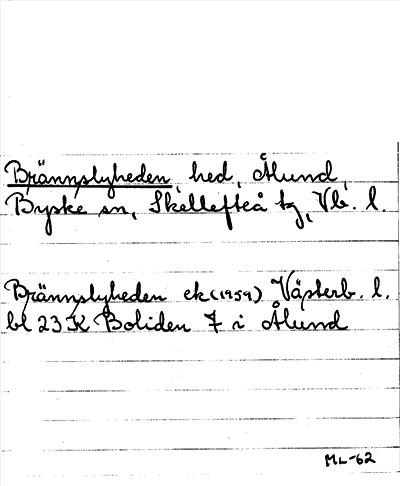 Brännslyheden, hed, Ålund,
Byske sn, Skellefteå tg, Vb. l.
Brännslyheden ek (1959) Västerb. l.
bl 23 K Boliden 7 i Ålund
ML-62